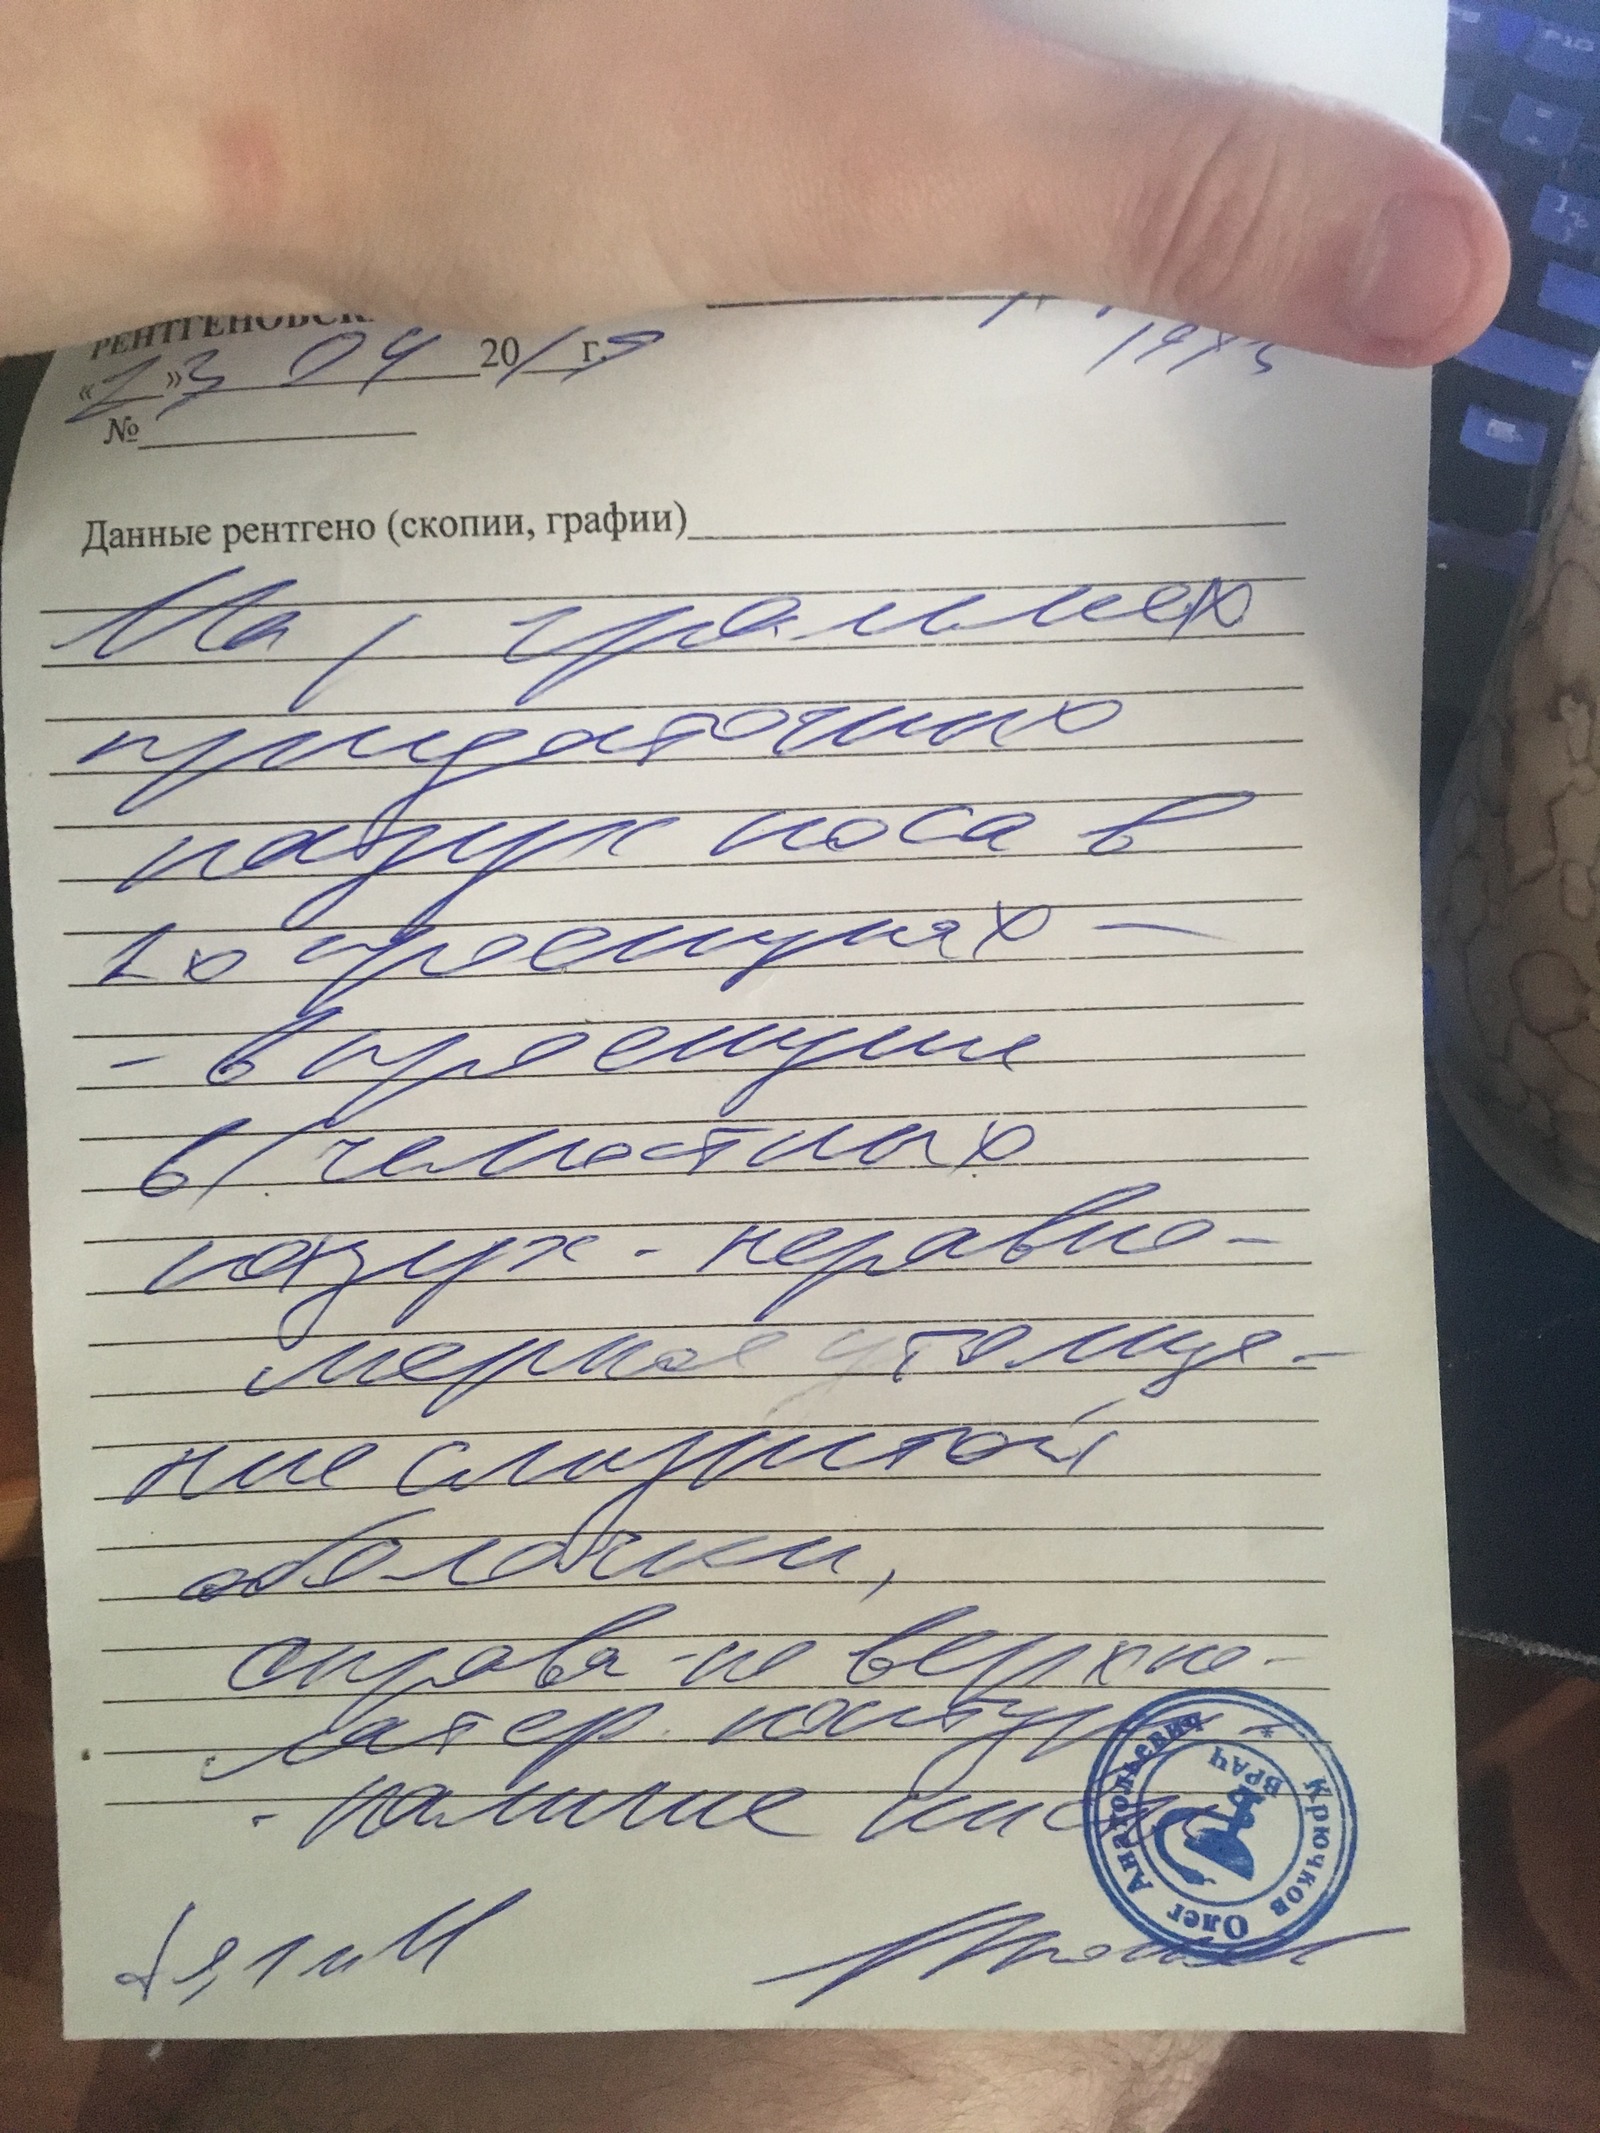 РЕНТГЕНОВСК
«23» 04 2019 г.
№
Данные рентгено (скопии, графии)
На р граммах
придаточных
пазух носа в
2х проекциях —
- в проекции
в/челюстных
пазух - неравно-
мерное утолще-
ние слизистой
оболочки,
справа - по верхне-
латер. контуру
- наличие кисты
Крючков Олег Анатольевич *
ВРАЧ